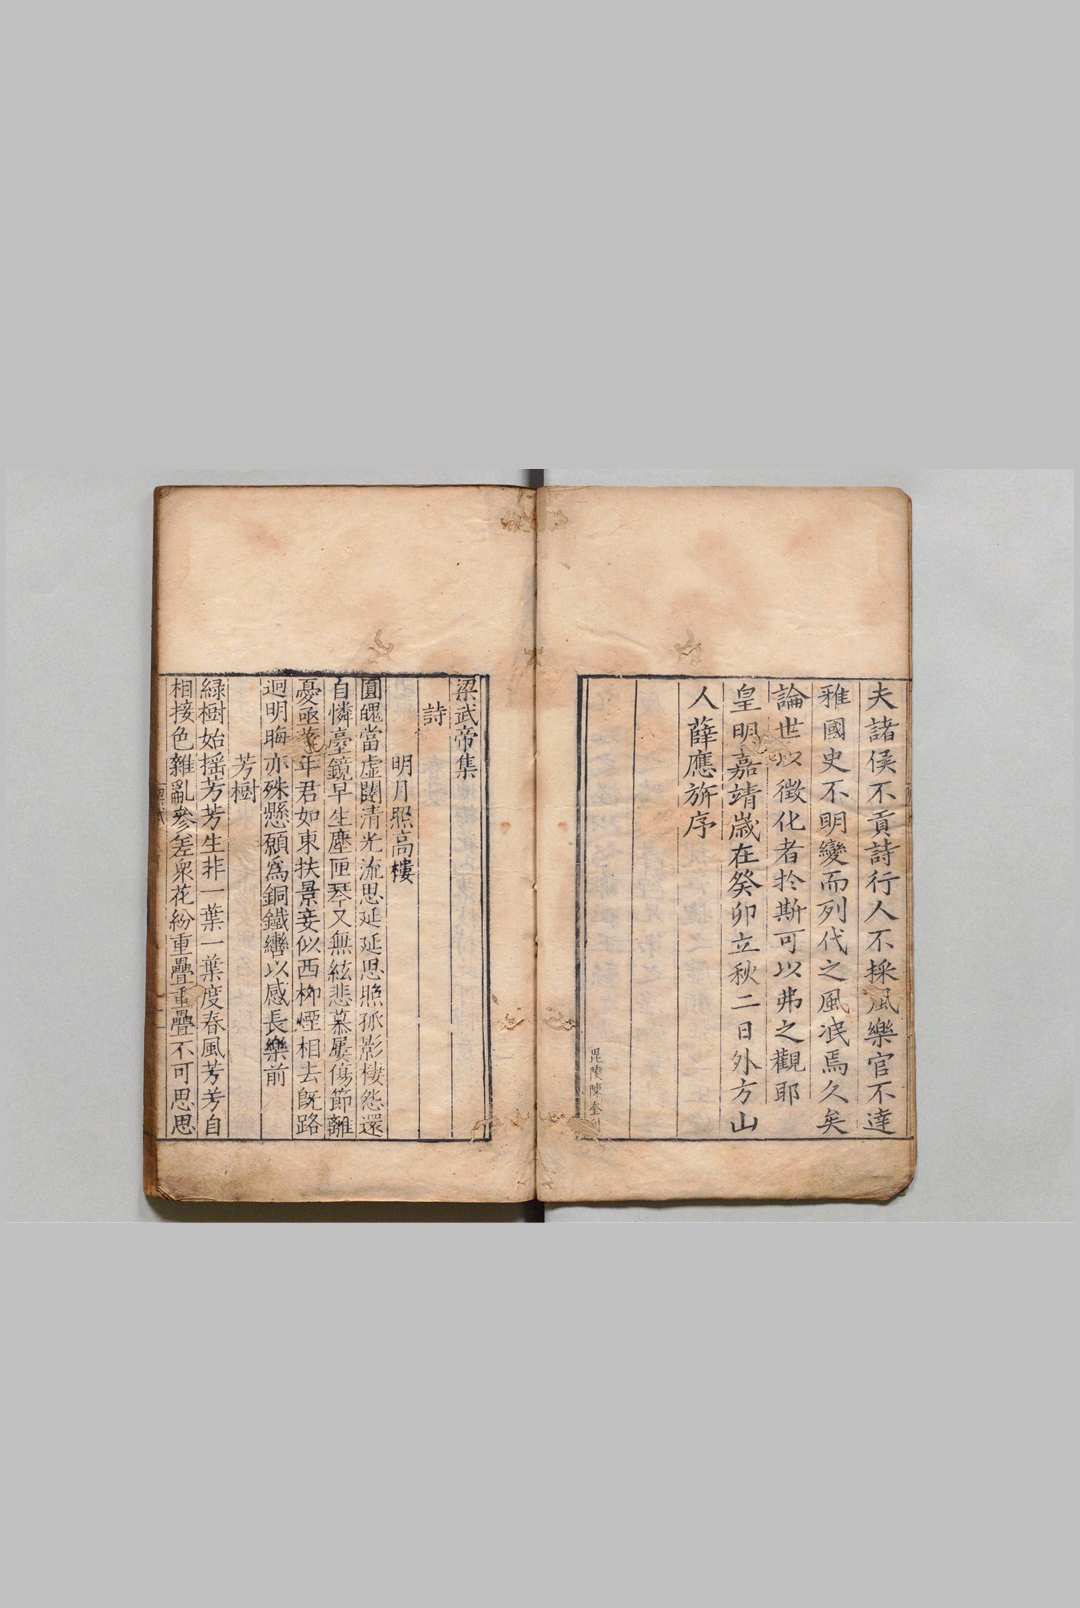 夫諸侯不貢詩行人不採風樂官不達
雅國史不明變而列代之風泯焉久矣
論世以徵化者於斯可以弗之觀耶
皇明嘉靖歲在癸卯立秋二日外方山
人薛應旂序
毘陵陳奎
梁武帝集
詩
明月照高樓
圓魄當虛闥清光流思延延思照孤影悽怨還
自憐臺鏡早生塵匣琴又無絃悲慕屢傷節離
憂亟華年君如東扶景妾似西柳煙相去既路
迥明晦亦殊懸願為銅鐵轡以感長樂前
芳樹
綠樹始搖芳芳生非一葉一葉度春風芳芳自
相接色雜亂參差眾花紛重疊重疊不可思思